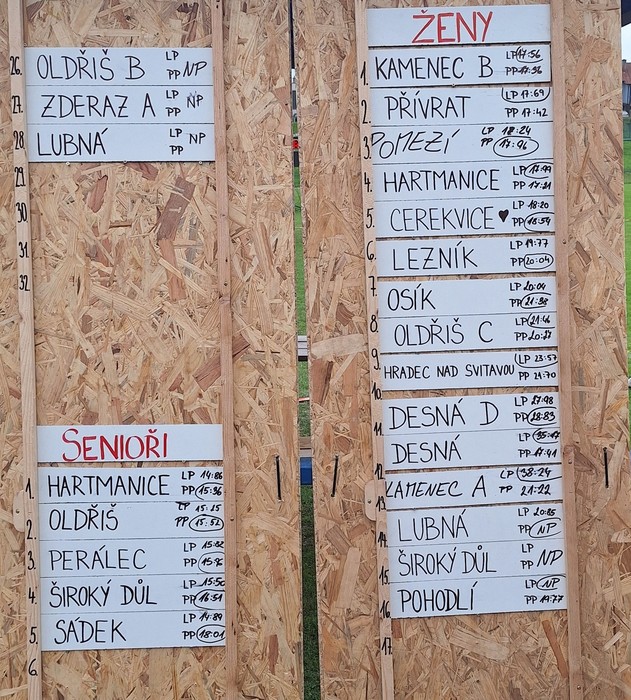 26. OLDŘIŠ B LP
PP NP
27. ZDERAZ A LP
PP NP
28. LUBNÁ LP
PP NP
29.
30.
31.
32.
SENIOŘI
1. HARTMANICE LP 14:86
PP 15:36
2. OLDŘIŠ LP 15:15
PP 15:52
3. PERÁLEC LP 15:92
PP 15:96
4. ŠIROKÝ DŮL LP 15:50
PP 16:51
5. SÁDEK LP 14:89
PP 18:01
6.
ŽENY
1. KAMENEC B LP 17:56
PP 17:36
2. PŘÍVRAT LP 17:69
PP 17:42
3. POMEZÍ LP 18:24
PP 17:96
4. HARTMANICE LP 17:99
PP 17:21
5. CEREKVICE ♥ LP 18:20
PP 18:59
6. LEZNÍK LP 19:77
PP 20:04
7. OSÍK LP 20:04
PP 21:38
8. OLDŘIŠ C LP 21:46
PP 20:27
9. HRADEC NAD SVITAVOU LP 23:57
PP 21:70
10. DESNÁ D LP 27:98
PP 28:83
11. DESNÁ LP 35:47
PP 17:41
12. KAMENEC A LP 38:24
PP 21:22
13. LUBNÁ LP 20:85
PP NP
14. ŠIROKÝ DŮL LP
PP NP
15. POHODLÍ LP NP
PP 19:77
16.
17.